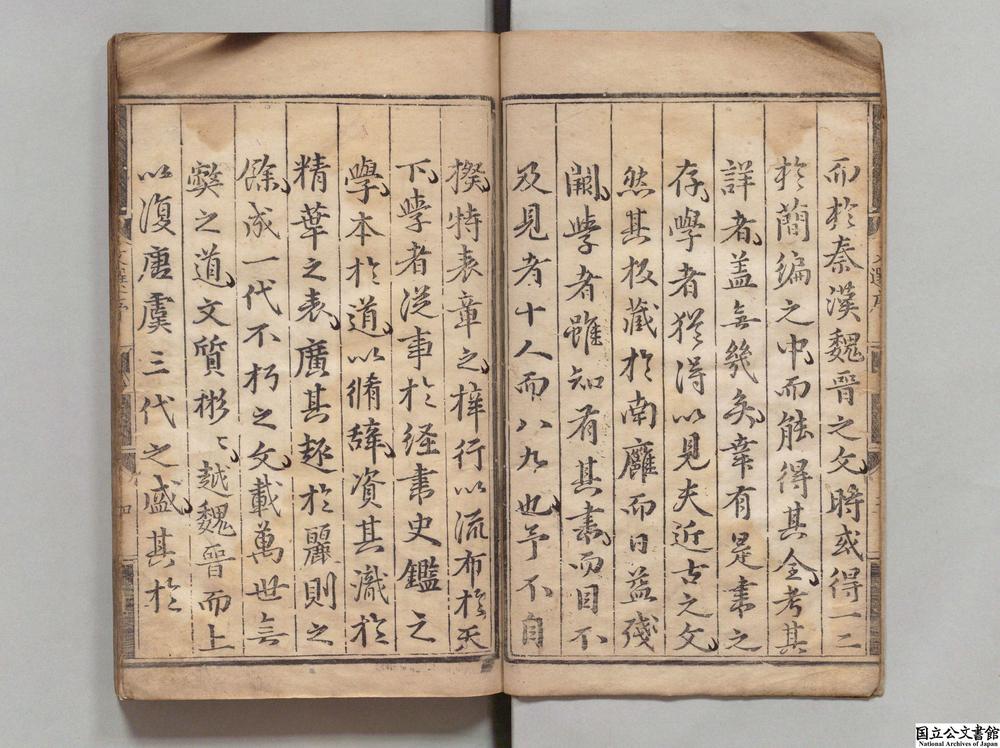 而於秦漢魏晉之文時或得一二
於簡編之中而能得其全考其
詳者盖無幾矣幸有是書之
存學者猶得以見夫近古之文
然其板藏於南廱而日益殘
闕學者雖知有其書而目不
及見者十人而八九也予不自
揆特表章之梓行以流布於天
下學者從事於経書史鑑之
學本於道以脩辭資其識於
精華之表廣其趣於麗則之
餘成一代不朽之文載萬世無
弊之道文質彬〻越魏晉而上
以復唐虞三代之盛其於
国立公文書館
National Archives of Japan